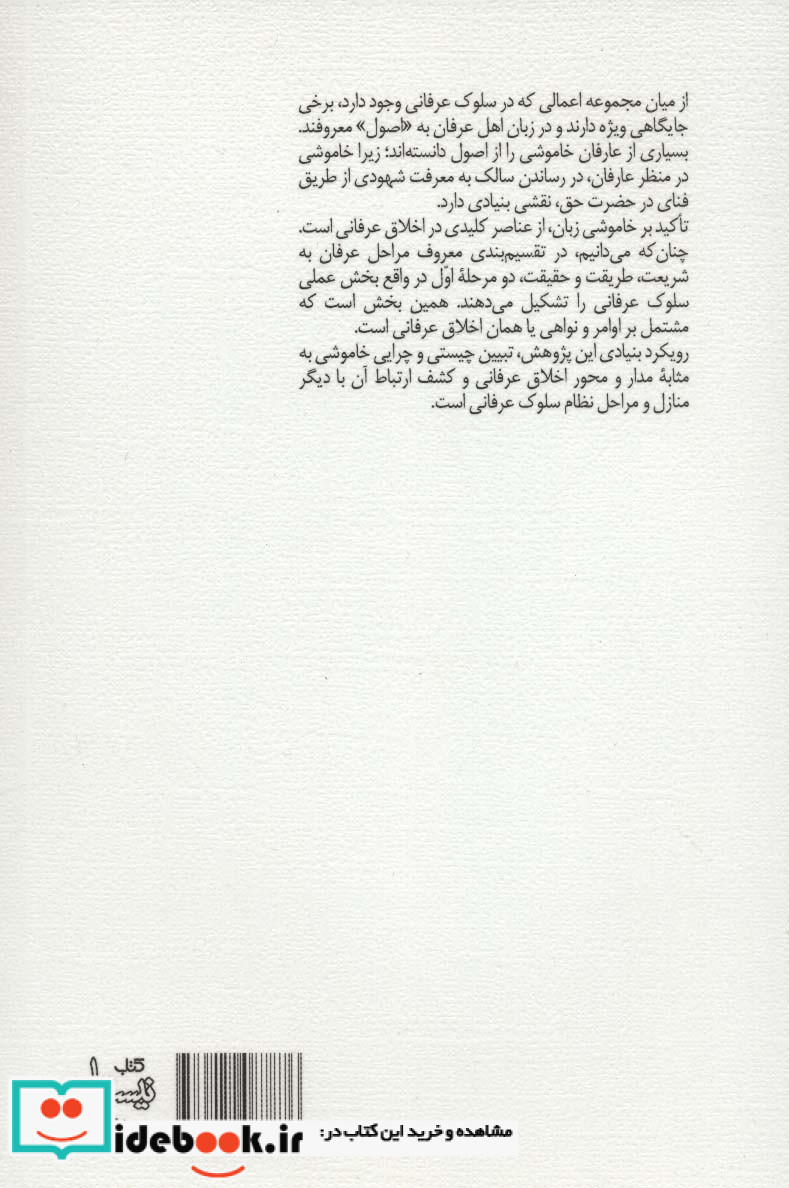 از میان مجموعه اعمالی که در سلوک عرفانی وجود دارد، برخی
جایگاهی ویژه دارند و در زبان اهل عرفان به «اصول» معروفند.
بسیاری از عارفان خاموشی را از اصول دانسته‌اند؛ زیرا خاموشی
در منظر عارفان، در رساندن سالک به معرفت شهودی از طریق
فنای در حضرت حق، نقشی بنیادی دارد.
تأکید بر خاموشی زبان، از عناصر کلیدی در اخلاق عرفانی است.
چنان‌که می‌دانیم، در تقسیم‌بندی معروف مراحل عرفان به
شریعت، طریقت و حقیقت، دو مرحلهٔ اوّل در واقع بخش عملی
سلوک عرفانی را تشکیل می‌دهند. همین بخش است که
مشتمل بر اوامر و نواهی یا همان اخلاق عرفانی است.
رویکرد بنیادی این پژوهش، تبیین چیستی و چرایی خاموشی به
مثابهٔ مدار و محور اخلاق عرفانی و کشف ارتباط آن با دیگر
منازل و مراحل نظام سلوک عرفانی است.
کتاب
مشاهده و خرید این کتاب در:
idebook.ir